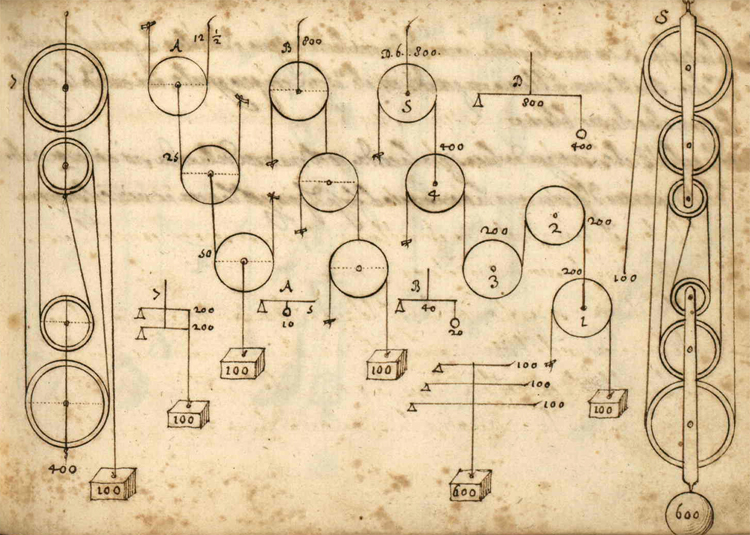 A
12 ½
25
50
100
B
800
100
D. 6. 800.
S
400
4
200
3
2
200
200
1
100
D
800
400
S
100
600
200
200
100
A
5
10
B
40
20
100
100
100
600
400
100